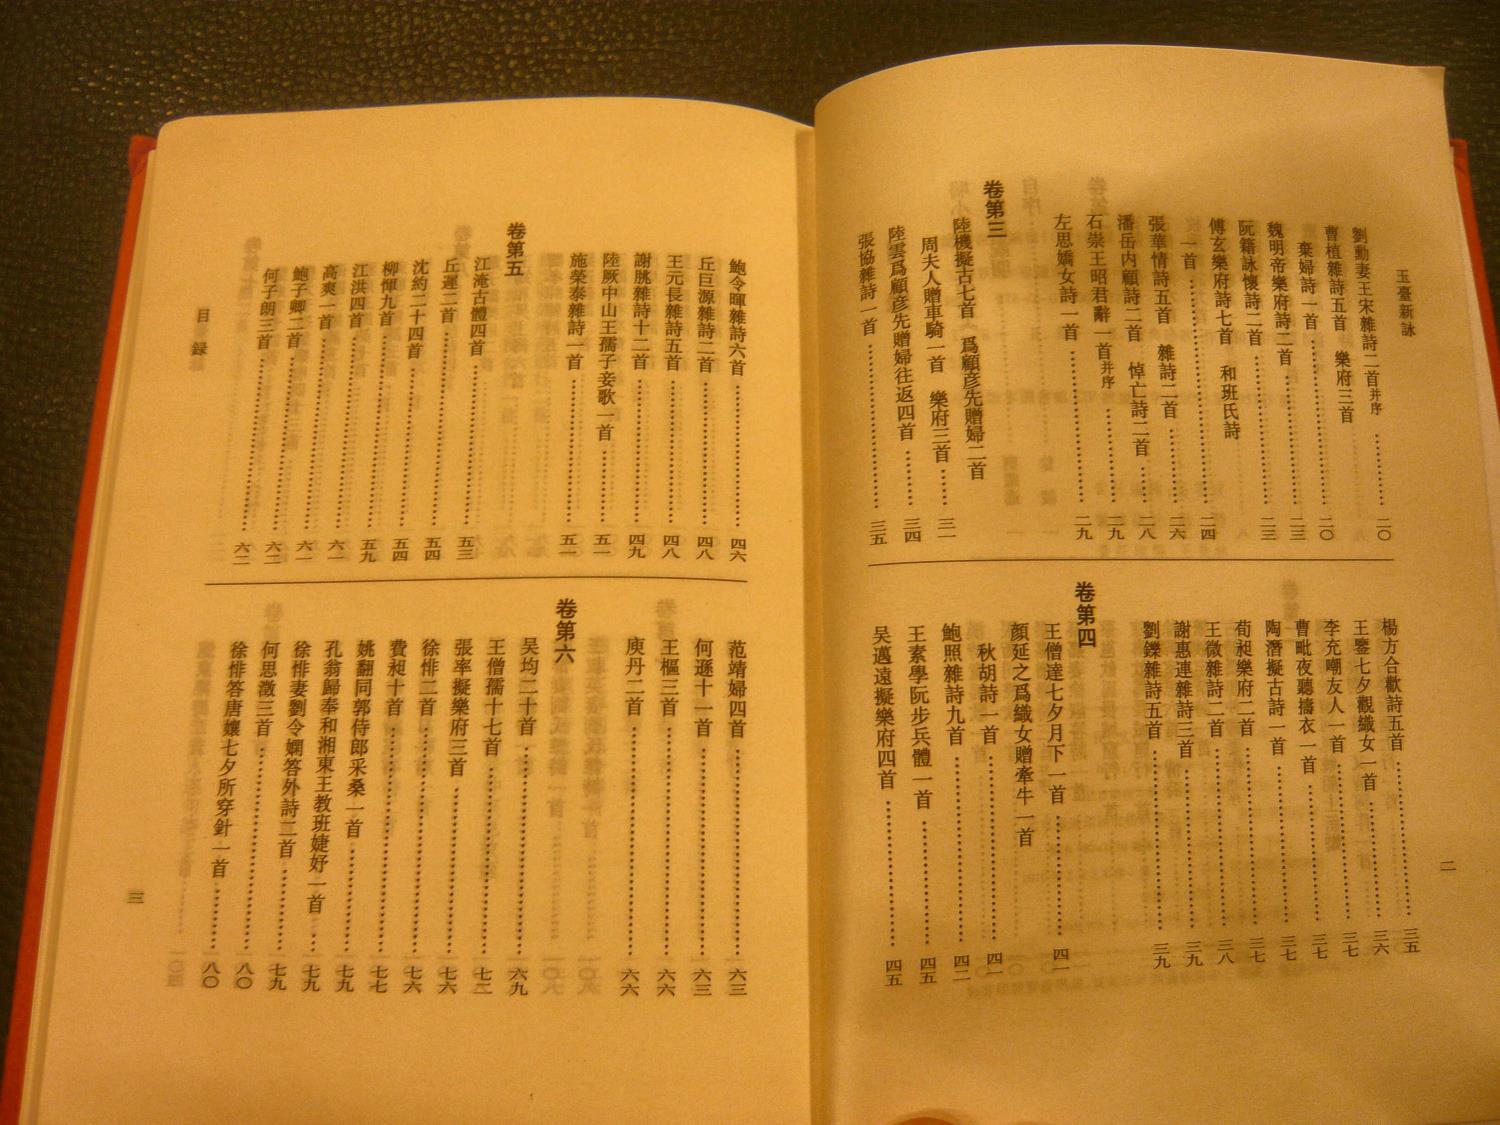 玉臺新詠
二
劉勳妻王宋雜詩二首并序……二〇
曹植雜詩五首　樂府三首
棄婦詩一首……二〇
魏明帝樂府詩二首……二三
阮籍詠懷詩二首……二三
傅玄樂府詩七首　和班氏詩
一首……二四
張華情詩五首　雜詩二首……二六
潘岳内顧詩二首　悼亡詩二首……二八
石崇王昭君辭一首并序……二九
左思嬌女詩一首……二九
卷第三
陸機擬古七首　爲顧彦先贈婦二首
周夫人贈車騎一首　樂府三首……三一
陸雲爲顧彦先贈婦往返四首……三四
張協雜詩一首……三五
楊方合歡詩五首……三五
王鑒七夕觀織女一首……三六
李充嘲友人一首……三七
曹毗夜聽擣衣一首……三七
陶潛擬古詩一首……三七
荀昶樂府二首……三七
王微雜詩二首……三八
謝惠連雜詩三首……三九
劉鑠雜詩五首……三九
卷第四
王僧達七夕月下一首……四一
顔延之爲織女贈牽牛一首
秋胡詩一首……四一
鮑照雜詩九首……四二
王素學阮步兵體一首……四五
吴邁遠擬樂府四首……四五
鮑令暉雜詩六首……四六
丘巨源雜詩二首……四八
王元長雜詩五首……四八
謝朓雜詩十二首……四九
陸厥中山王孺子妾歌一首……五一
施榮泰雜詩一首……五一
卷第五
江淹古體四首……五三
丘遲二首……五四
沈約二十四首……五四
柳惲九首……五四
江洪四首……五九
高爽一首……六一
鮑子卿二首……六一
何子朗三首……六二
目録
三
范靖婦四首……六三
何遜十一首……六三
王樞三首……六六
庾丹二首……六六
卷第六
吴均二十首……六九
王僧孺十七首……七二
張率擬樂府三首……七六
徐悱二首……七六
費昶十首……七七
姚翻同郭侍郎采桑一首……七九
孔翁歸奉和湘東王教班婕妤一首……七九
徐悱妻劉令嫻答外詩二首……七九
何思澂三首……八〇
徐悱答唐孃七夕所穿針一首……八〇